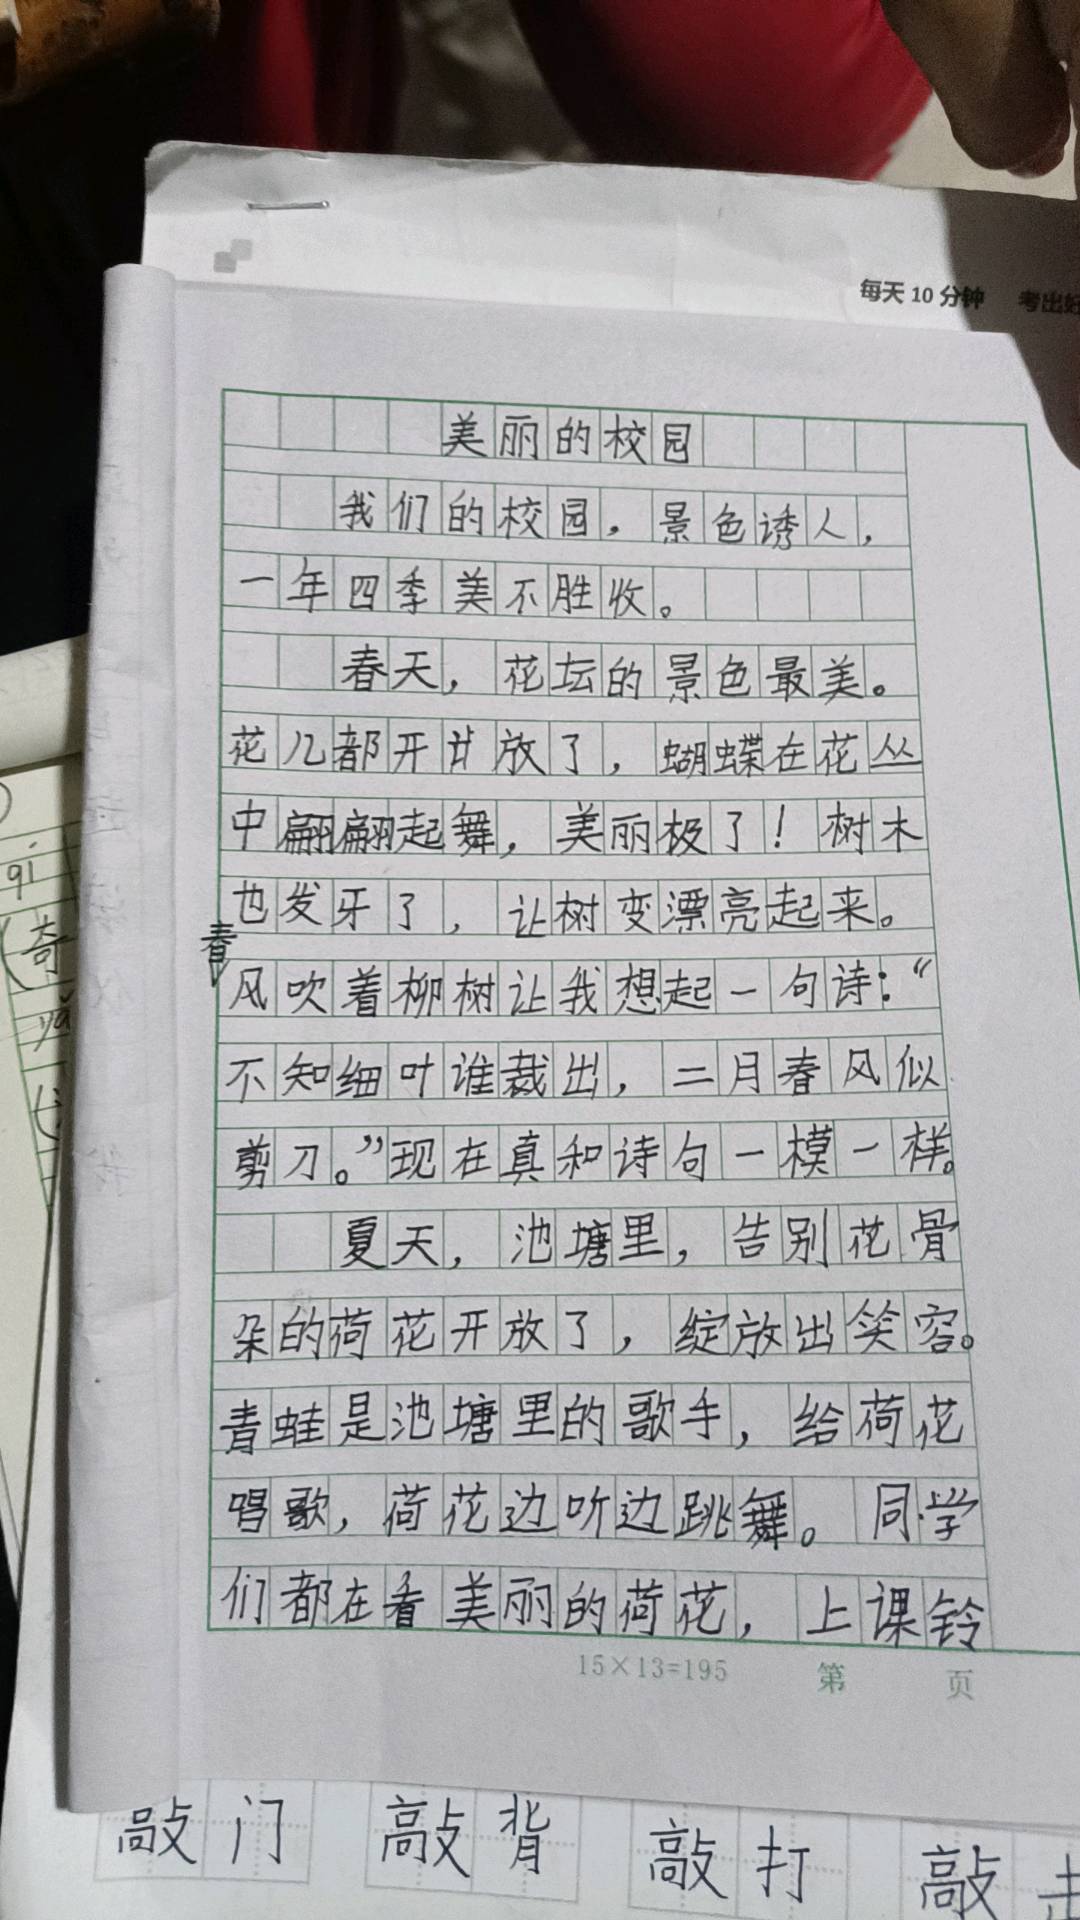 每天10分钟 考出好
美丽的校园
我们的校园，景色诱人，
一年四季美不胜收。
春天，花坛的景色最美。
花儿都开放了，蝴蝶在花丛
中翩翩起舞，美丽极了！树木
也发牙了，让树变漂亮起来。
春
风吹着柳树让我想起一句诗：“
不知细叶谁裁出，二月春风似
剪刀。”现在真和诗句一模一样。
夏天，池塘里，告别花骨
朵的荷花开放了，绽放出笑容。
青蛙是池塘里的歌手，给荷花
唱歌，荷花边听边跳舞。同学
们都在看美丽的荷花，上课铃
15×13=195 第 页
qi
奇
敲门 敲背 敲打 敲